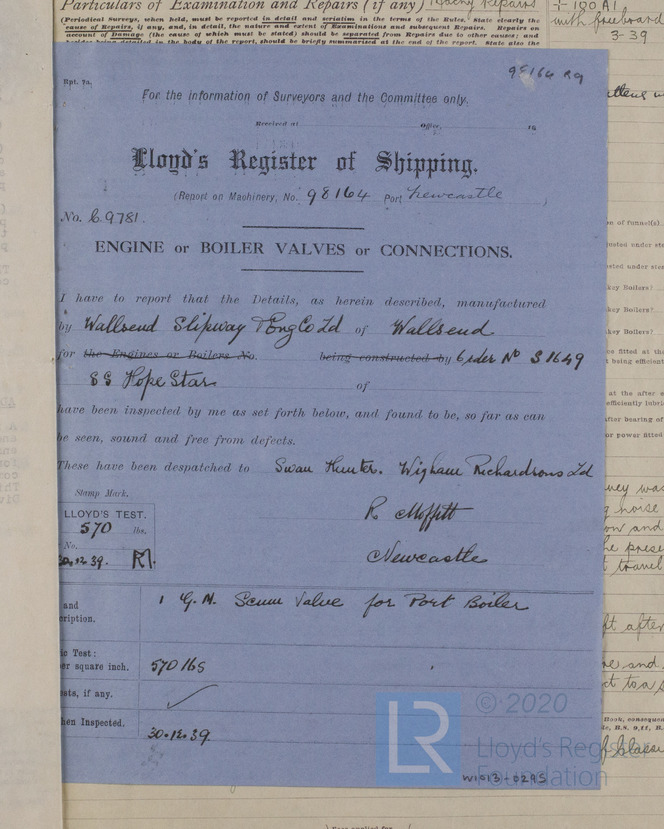 Particulars of Examination and Repairs (if any)
(Periodical Surveys, when held, must be reported in detail and seriatim in the terms of the Rules. State clearly the
cause of Repairs, if any, and, in detail, the nature and extent of Examinations and subsequent Repairs. Repairs on
account of Damage (the cause of which must be stated) should be separated from Repairs due to other causes; and
+ 100 A1
with freeboard
3-39
98164
Rpt. 7a.
For the information of Surveyors and the Committee only.
Received at Office, 19
Lloyd's Register of Shipping.
(Report on Machinery, No. 98164 Port Newcastle )
No. C.9781.
ENGINE or BOILER VALVES or CONNECTIONS.
I have to report that the Details, as herein described, manufactured
by Wallsend Slipway & Eng Co Ld of Wallsend
for the Engines or Boilers No. being constructed by Order No S1649
SS Hope Star of
have been inspected by me as set forth below, and found to be, so far as can
be seen, sound and free from defects.
These have been despatched to Swan Hunter. Wigham Richardsons Ld
Stamp Mark.
LLOYD'S TEST.
570 lbs.
No.
30.12.39. RM.
R. Moffitt
Newcastle
and
1 G.M. Scum Valve for Port Boiler
Test:
per square inch. 570 lbs
if any.
Inspected. 30.12.39
LR
© 2020
Lloyd's Register
Foundation
W1013-0295